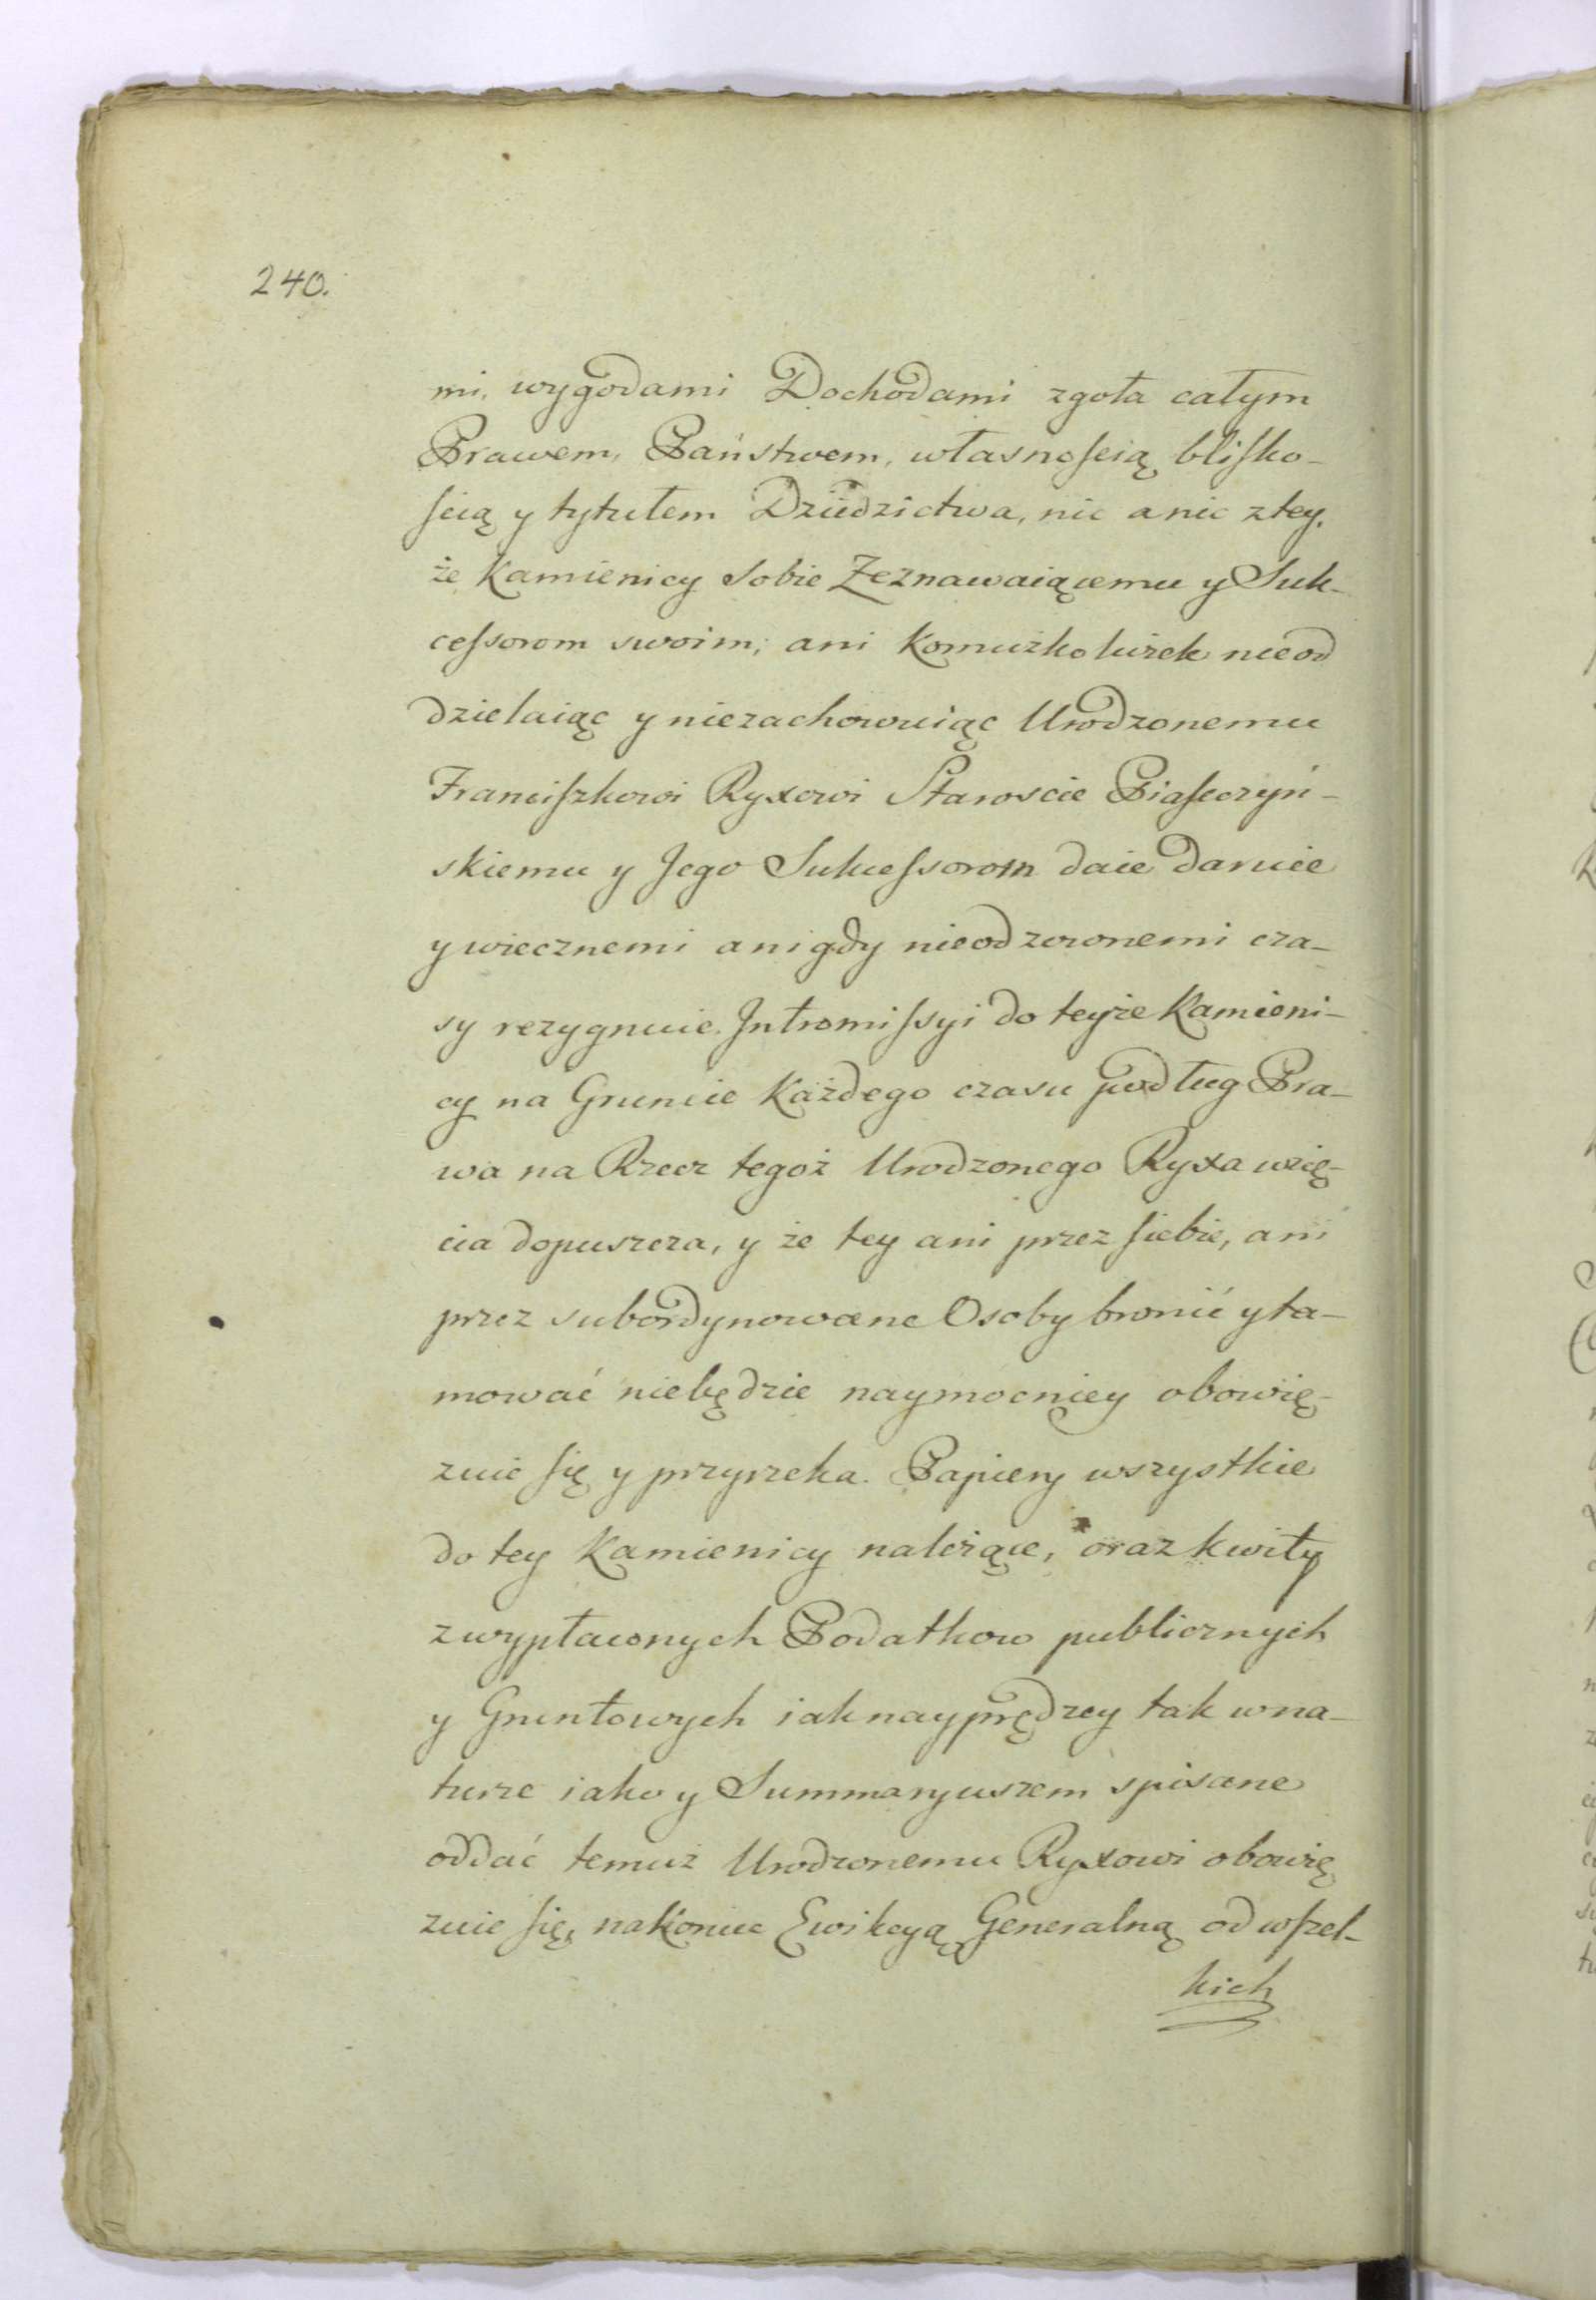 240.
mi, wygodami Dochodami zgoła całym
Prawem, Państwem, własnoſcią bliſko-
ſcią y tytułem Dziedzictwa, nic a nic z tey,
że Kamienicy Sobie Zeznawaiącemu y Suk-
ceſsorom swoim, ani Komużkolwiek nieod
dzielaiąc y niezachowuiąc Urodzonemu
Franciſzkowi Ryxowi Staroscie Piaſeczyń-
skiemu y Jego Sukceſsorom daie daruie
y wiecznemi a nigdy nieodzownemi cza-
sy rezygnuie. Intromiſsyi do teyże Kamieni-
cy na Gruncie Każdego czasu podług Pra-
wa na Rzecz tegoż Urodzonego Ryxa wzię-
cia dopuszcza, y że tey ani przez ſiebie, ani
przez subordynowane Osoby bronić y ta-
mować niebędzie naymocniey obowię-
zuie ſię y przyrzeka. Papiery wszystkie
do tey Kamienicy należące, oraz kwity
z wypłaconych Podatkow publicznych
y Gruntowych iak nayprędzey tak w na-
turze iako y Summaryuszem spisane
oddać temuż Urodzonemu Ryxowi obowię
zuie ſię, nakoniec Ewikcyą Generalną od wſzel-
kich